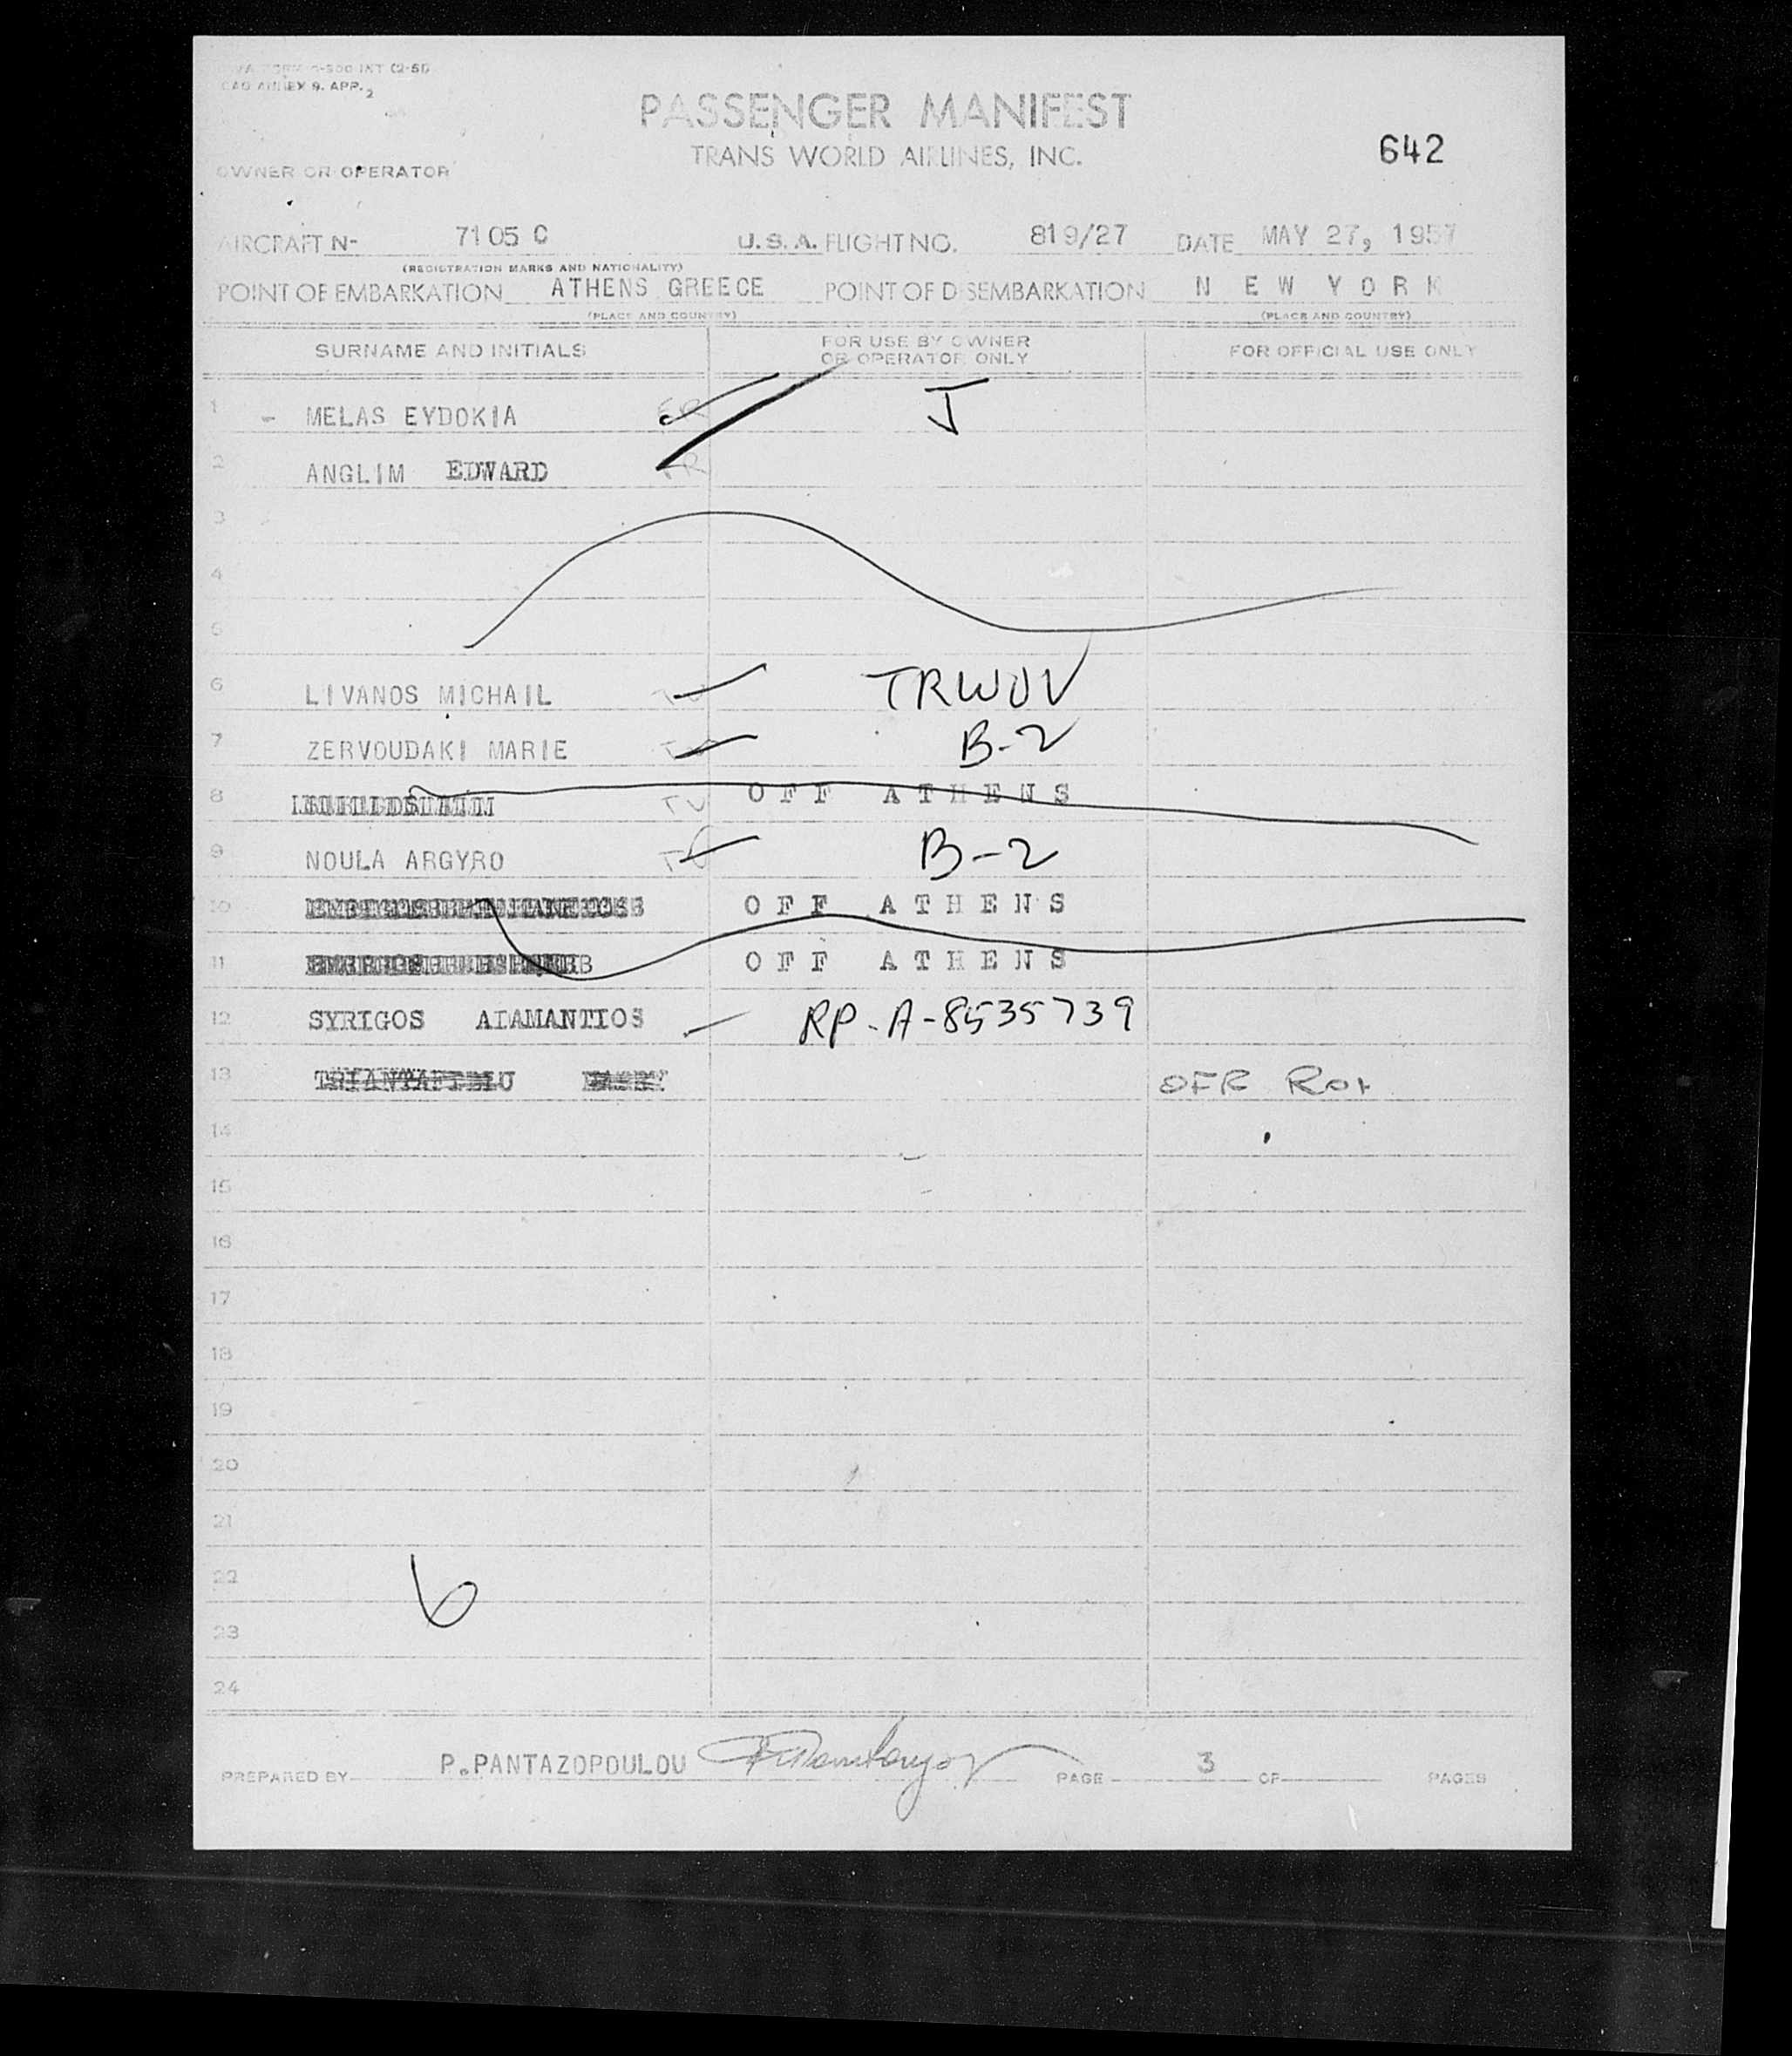 TWA FORM 0-500 INT (2-51)
ICAO ANNEX 9. APP. 2
PASSENGER MANIFEST
TRANS WORLD AIRLINES, INC.
642
OWNER OR OPERATOR
AIRCRAFT N- 7105 C U.S.A. FLIGHT NO. 819/27 DATE MAY 27, 1957
(REGISTRATION MARKS AND NATIONALITY)
POINT OF EMBARKATION ATHENS GREECE POINT OF DISEMBARKATION N E W Y O R K
(PLACE AND COUNTRY) (PLACE AND COUNTRY)
SURNAME AND INITIALS FOR USE BY OWNER OR OPERATOR ONLY FOR OFFICIAL USE ONLY
1 - MELAS EYDOKIA J
2 ANGLIM EDWARD
3
4
5
6 LIVANOS MICHAIL TRWOV
7 ZERVOUDAKI MARIE B-2
8 TU O F F A T H E N S
9 NOULA ARGYRO B-2
10 O F F A T H E N S
11 O F F A T H E N S
12 SYRIGOS AIAMANTIOS RP-A-8535739
13
14
15
16
17
18
19
20
21
22
6
23
24
PREPARED BY P.PANTAZOPOULOU PAGE 3 OF PAGES